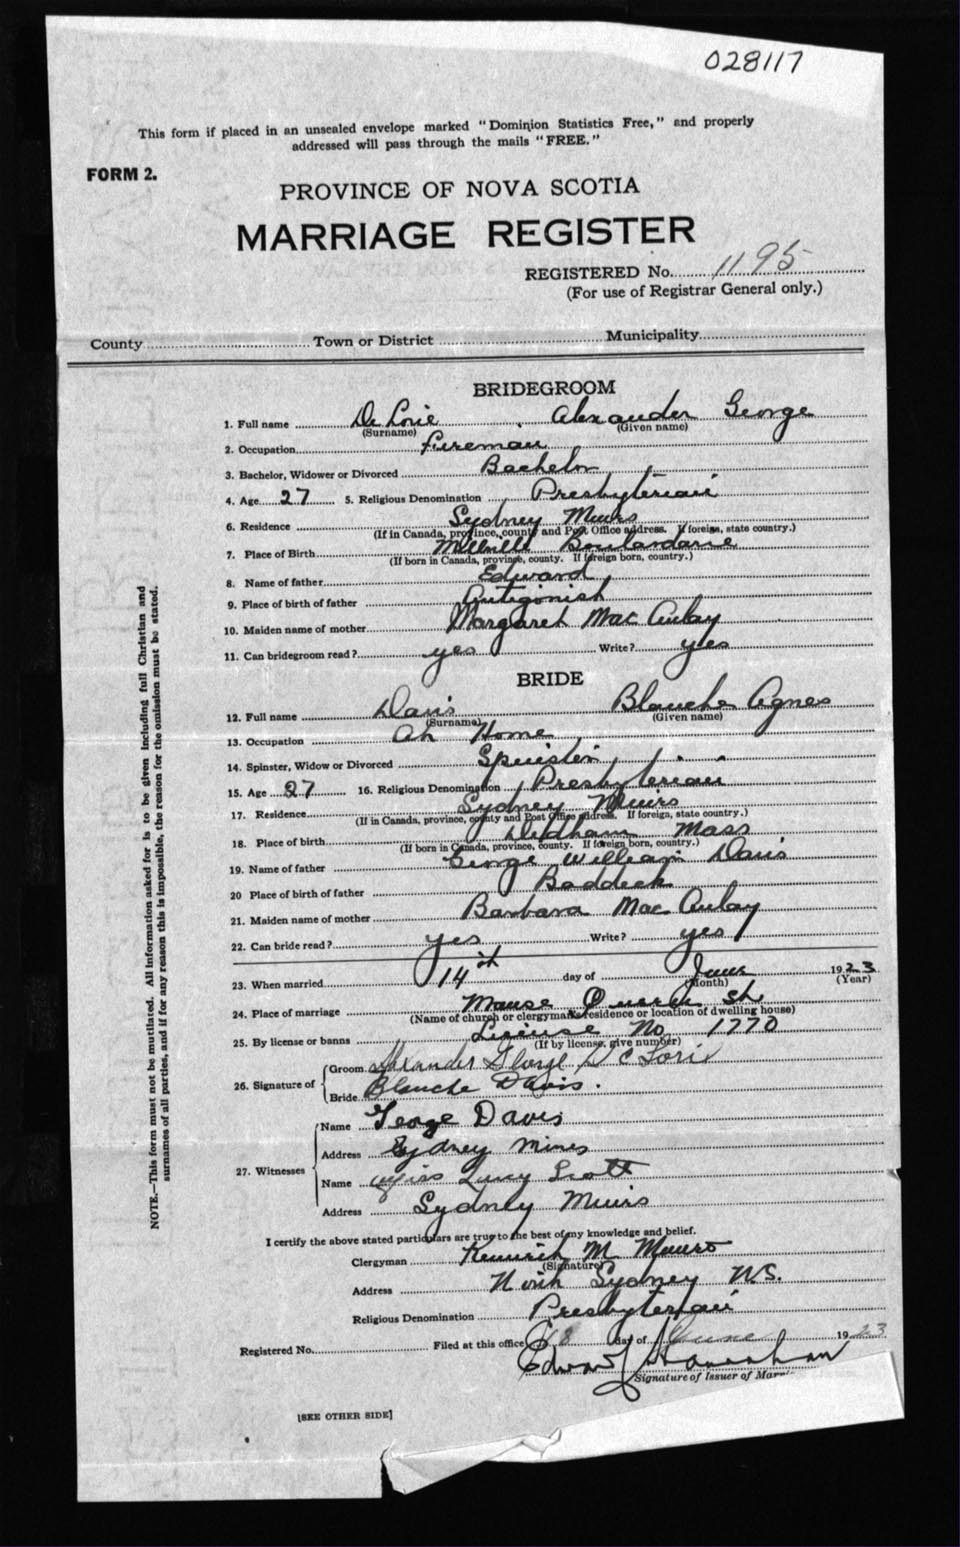 028117
This form if placed in an unsealed envelope marked "Dominion Statistics Free," and properly
addressed will pass through the mails "FREE."
FORM 2.
PROVINCE OF NOVA SCOTIA
MARRIAGE REGISTER
REGISTERED No. 1195
(For use of Registrar General only.)
County Town or District Municipality
BRIDEGROOM
1. Full name De Lorie Alexander George
(Surname) (Given name)
2. Occupation Fireman
3. Bachelor, Widower or Divorced Bachelor
4. Age 27 5. Religious Denomination Presbyterian
6. Residence Sydney Mines
(If in Canada, province, county and Post Office address. If foreign, state country.)
7. Place of Birth Boulardarie
(If born in Canada, province, county. If foreign born, country.)
8. Name of father Edward
9. Place of birth of father Antigonish
10. Maiden name of mother Margaret Mac Aulay
11. Can bridegroom read? yes Write? yes
BRIDE
12. Full name Davis Blanche Agnes
(Surname) (Given name)
13. Occupation At Home
14. Spinster, Widow or Divorced Spinster
15. Age 27 16. Religious Denomination Presbyterian
17. Residence Sydney Mines
(If in Canada, province, county and Post Office address. If foreign, state country.)
18. Place of birth Dedham Mass
(If born in Canada, province, county. If foreign born, country.)
19. Name of father George William Davis
20 Place of birth of father Baddeck
21. Maiden name of mother Barbara Mac Aulay
22. Can bride read? yes Write? yes
23. When married 14th day of June 1923
(Month) (Year)
24. Place of marriage Manse Queen St
(Name of church or clergyman's residence or location of dwelling house)
25. By license or banns License No 1770
(If by license, give number)
26. Signature of
Groom Alexander George De Lorie
Bride Blanche Davis.
27. Witnesses
Name George Davis
Address Sydney Mines
Name Miss Lucy Scott
Address Sydney Mines
I certify the above stated particulars are true to the best of my knowledge and belief.
Clergyman M Munro
(Signature)
Address North Sydney N.S.
Religious Denomination Presbyterian
Registered No. Filed at this office 18 day of June 1923
Edward Hanrahan
Signature of Issuer of Marr
[SEE OTHER SIDE]
NOTE.—This form must not be mutilated. All information asked for is to be given including full Christian and
surnames of all parties, and if for any reason this is impossible, the reason for the omission must be stated.